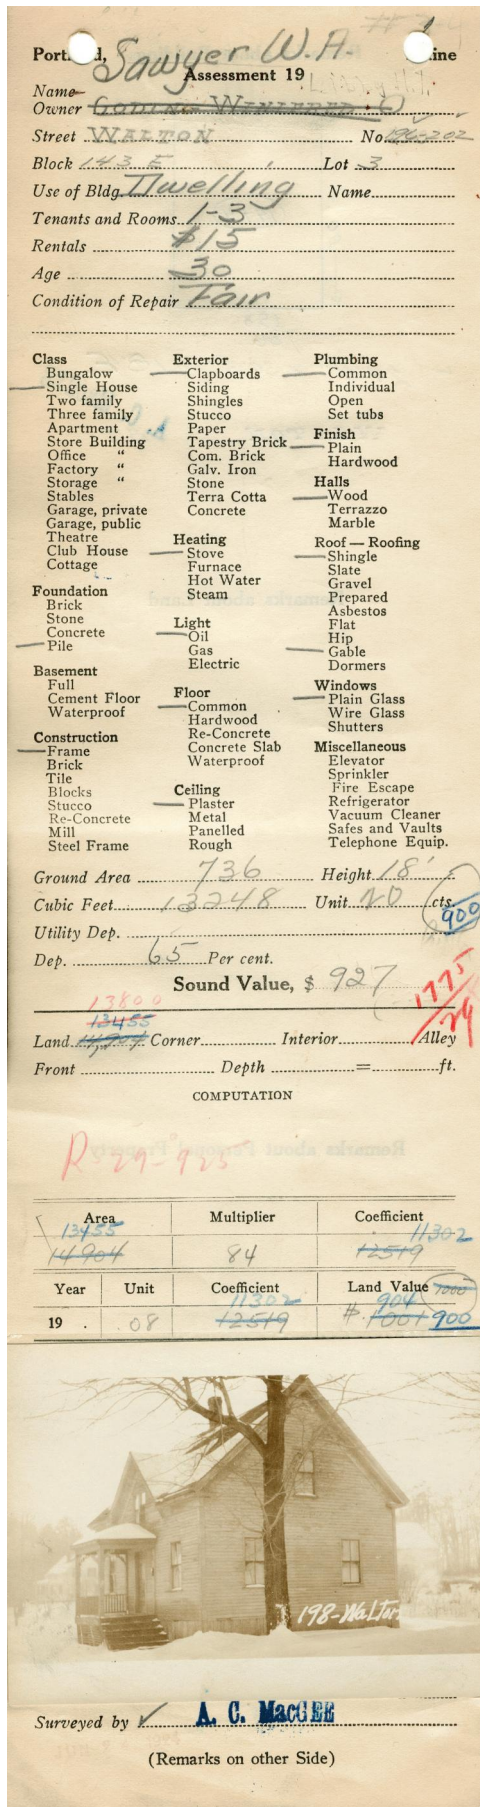 Portland, Maine
Sawyer W. A.
Assessment 19
Name
Owner Goding Winifred O
Street WALTON No. 196-202
Block 143 E Lot 3
Use of Bldg. Dwelling Name
Tenants and Rooms 1-3
Rentals $15
Age 30
Condition of Repair Fair
Class
Bungalow
Single House
Two family
Three family
Apartment
Store Building
Office "
Factory "
Storage "
Stables
Garage, private
Garage, public
Theatre
Club House
Cottage
Foundation
Brick
Stone
Concrete
Pile
Basement
Full
Cement Floor
Waterproof
Construction
Frame
Brick
Tile
Blocks
Stucco
Re-Concrete
Mill
Steel Frame
Exterior
Clapboards
Siding
Shingles
Stucco
Paper
Tapestry Brick
Com. Brick
Galv. Iron
Stone
Terra Cotta
Concrete
Heating
Stove
Furnace
Hot Water
Steam
Light
Oil
Gas
Electric
Floor
Common
Hardwood
Re-Concrete
Concrete Slab
Waterproof
Ceiling
Plaster
Metal
Panelled
Rough
Plumbing
Common
Individual
Open
Set tubs
Finish
Plain
Hardwood
Halls
Wood
Terrazzo
Marble
Roof — Roofing
Shingle
Slate
Gravel
Prepared
Asbestos
Flat
Hip
Gable
Dormers
Windows
Plain Glass
Wire Glass
Shutters
Miscellaneous
Elevator
Sprinkler
Fire Escape
Refrigerator
Vacuum Cleaner
Safes and Vaults
Telephone Equip.
Ground Area 736 Height 18'
Cubic Feet 13248 Unit 20 cts.
900
Utility Dep.
Dep. 65 Per cent.
Sound Value, $ 927
1775/29
13800
13455
Land 14,904 Corner Interior Alley
Front Depth = ft.
COMPUTATION
R 29-925
Area Multiplier Coefficient
13455 11302
14904 84 12519
Year Unit Coefficient Land Value 1000
11302 904
19 . 08 12519 $ 1001 900
198-Walton
Surveyed by A. C. MacGEE
(Remarks on other Side)